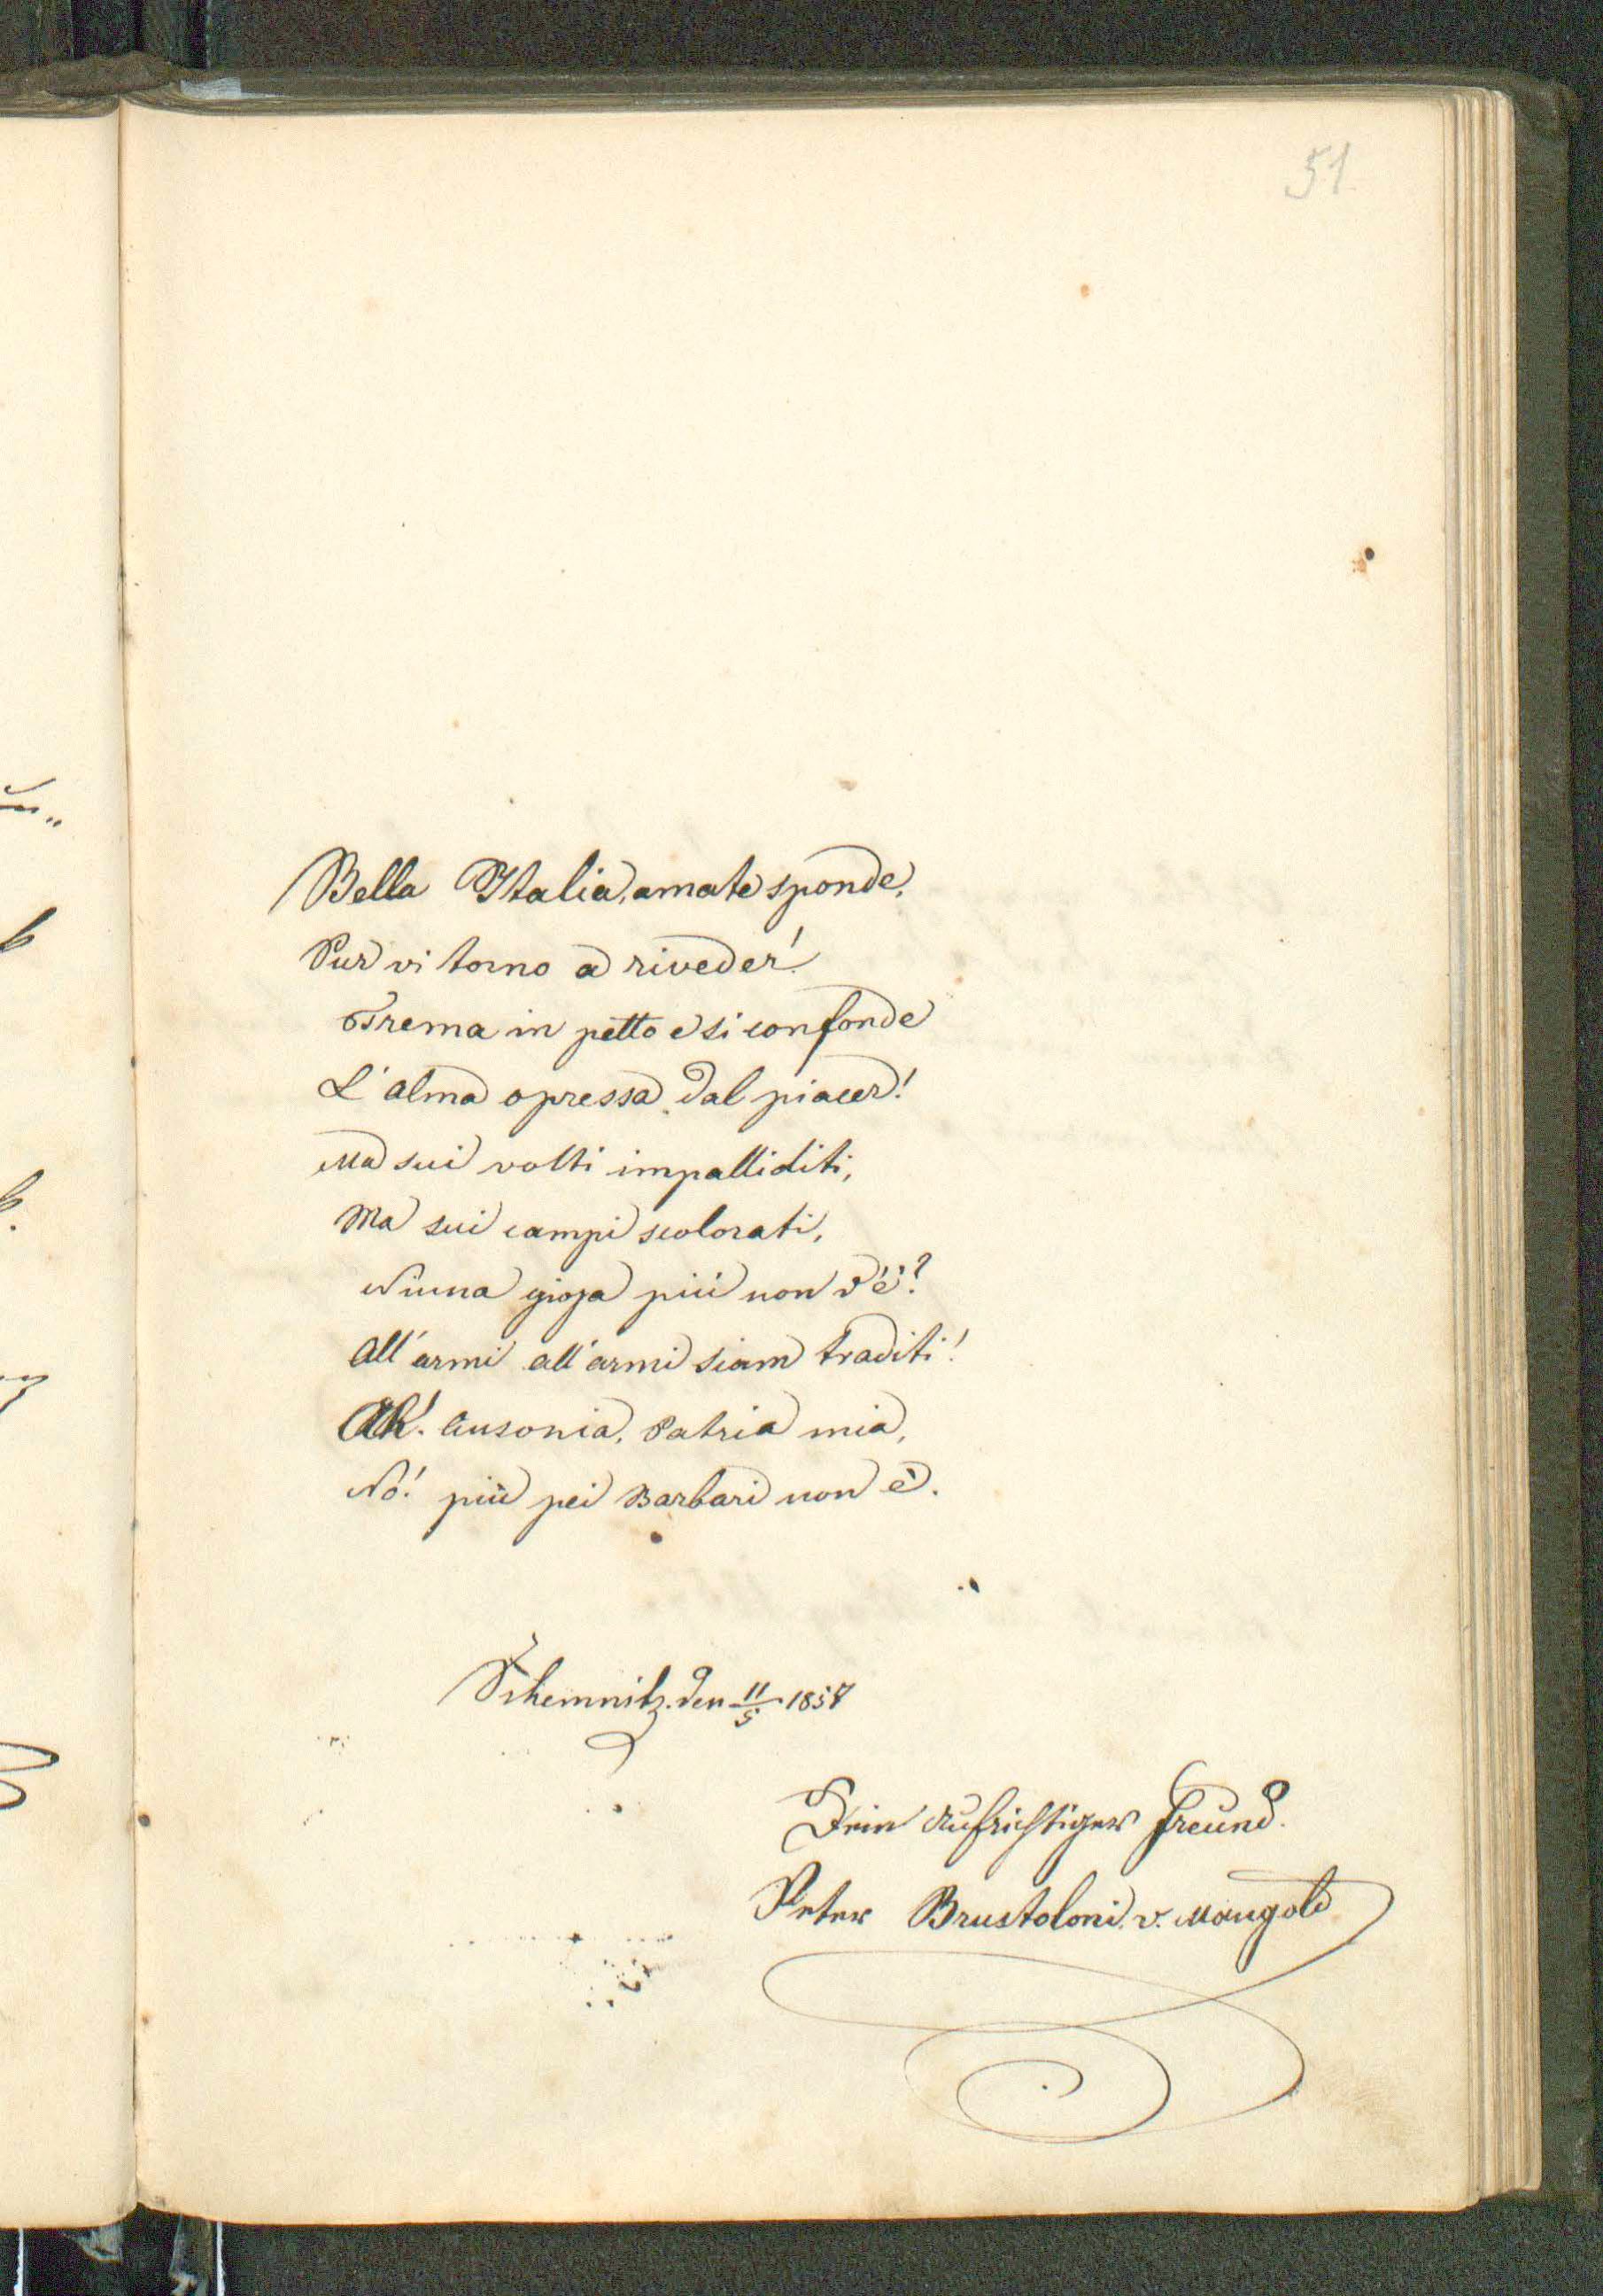 51
Bella Italia, amate sponde,
Pur vi torno a riveder!
Trema in petto e si confonde
L'alma opressa dal piacer!
Ma sui volti impalliditi,
Ma sui campi scolorati,
Niuna gioja più non v'é?
All'armi all'armi siam traditi!
Ah! Ausonia, Patria mia,
No! più pei Barbari non è.
Schemnitz. den 11/5 1857
Dein Aufrichtiger Freund.
Peter Brustoloni v. Mangold